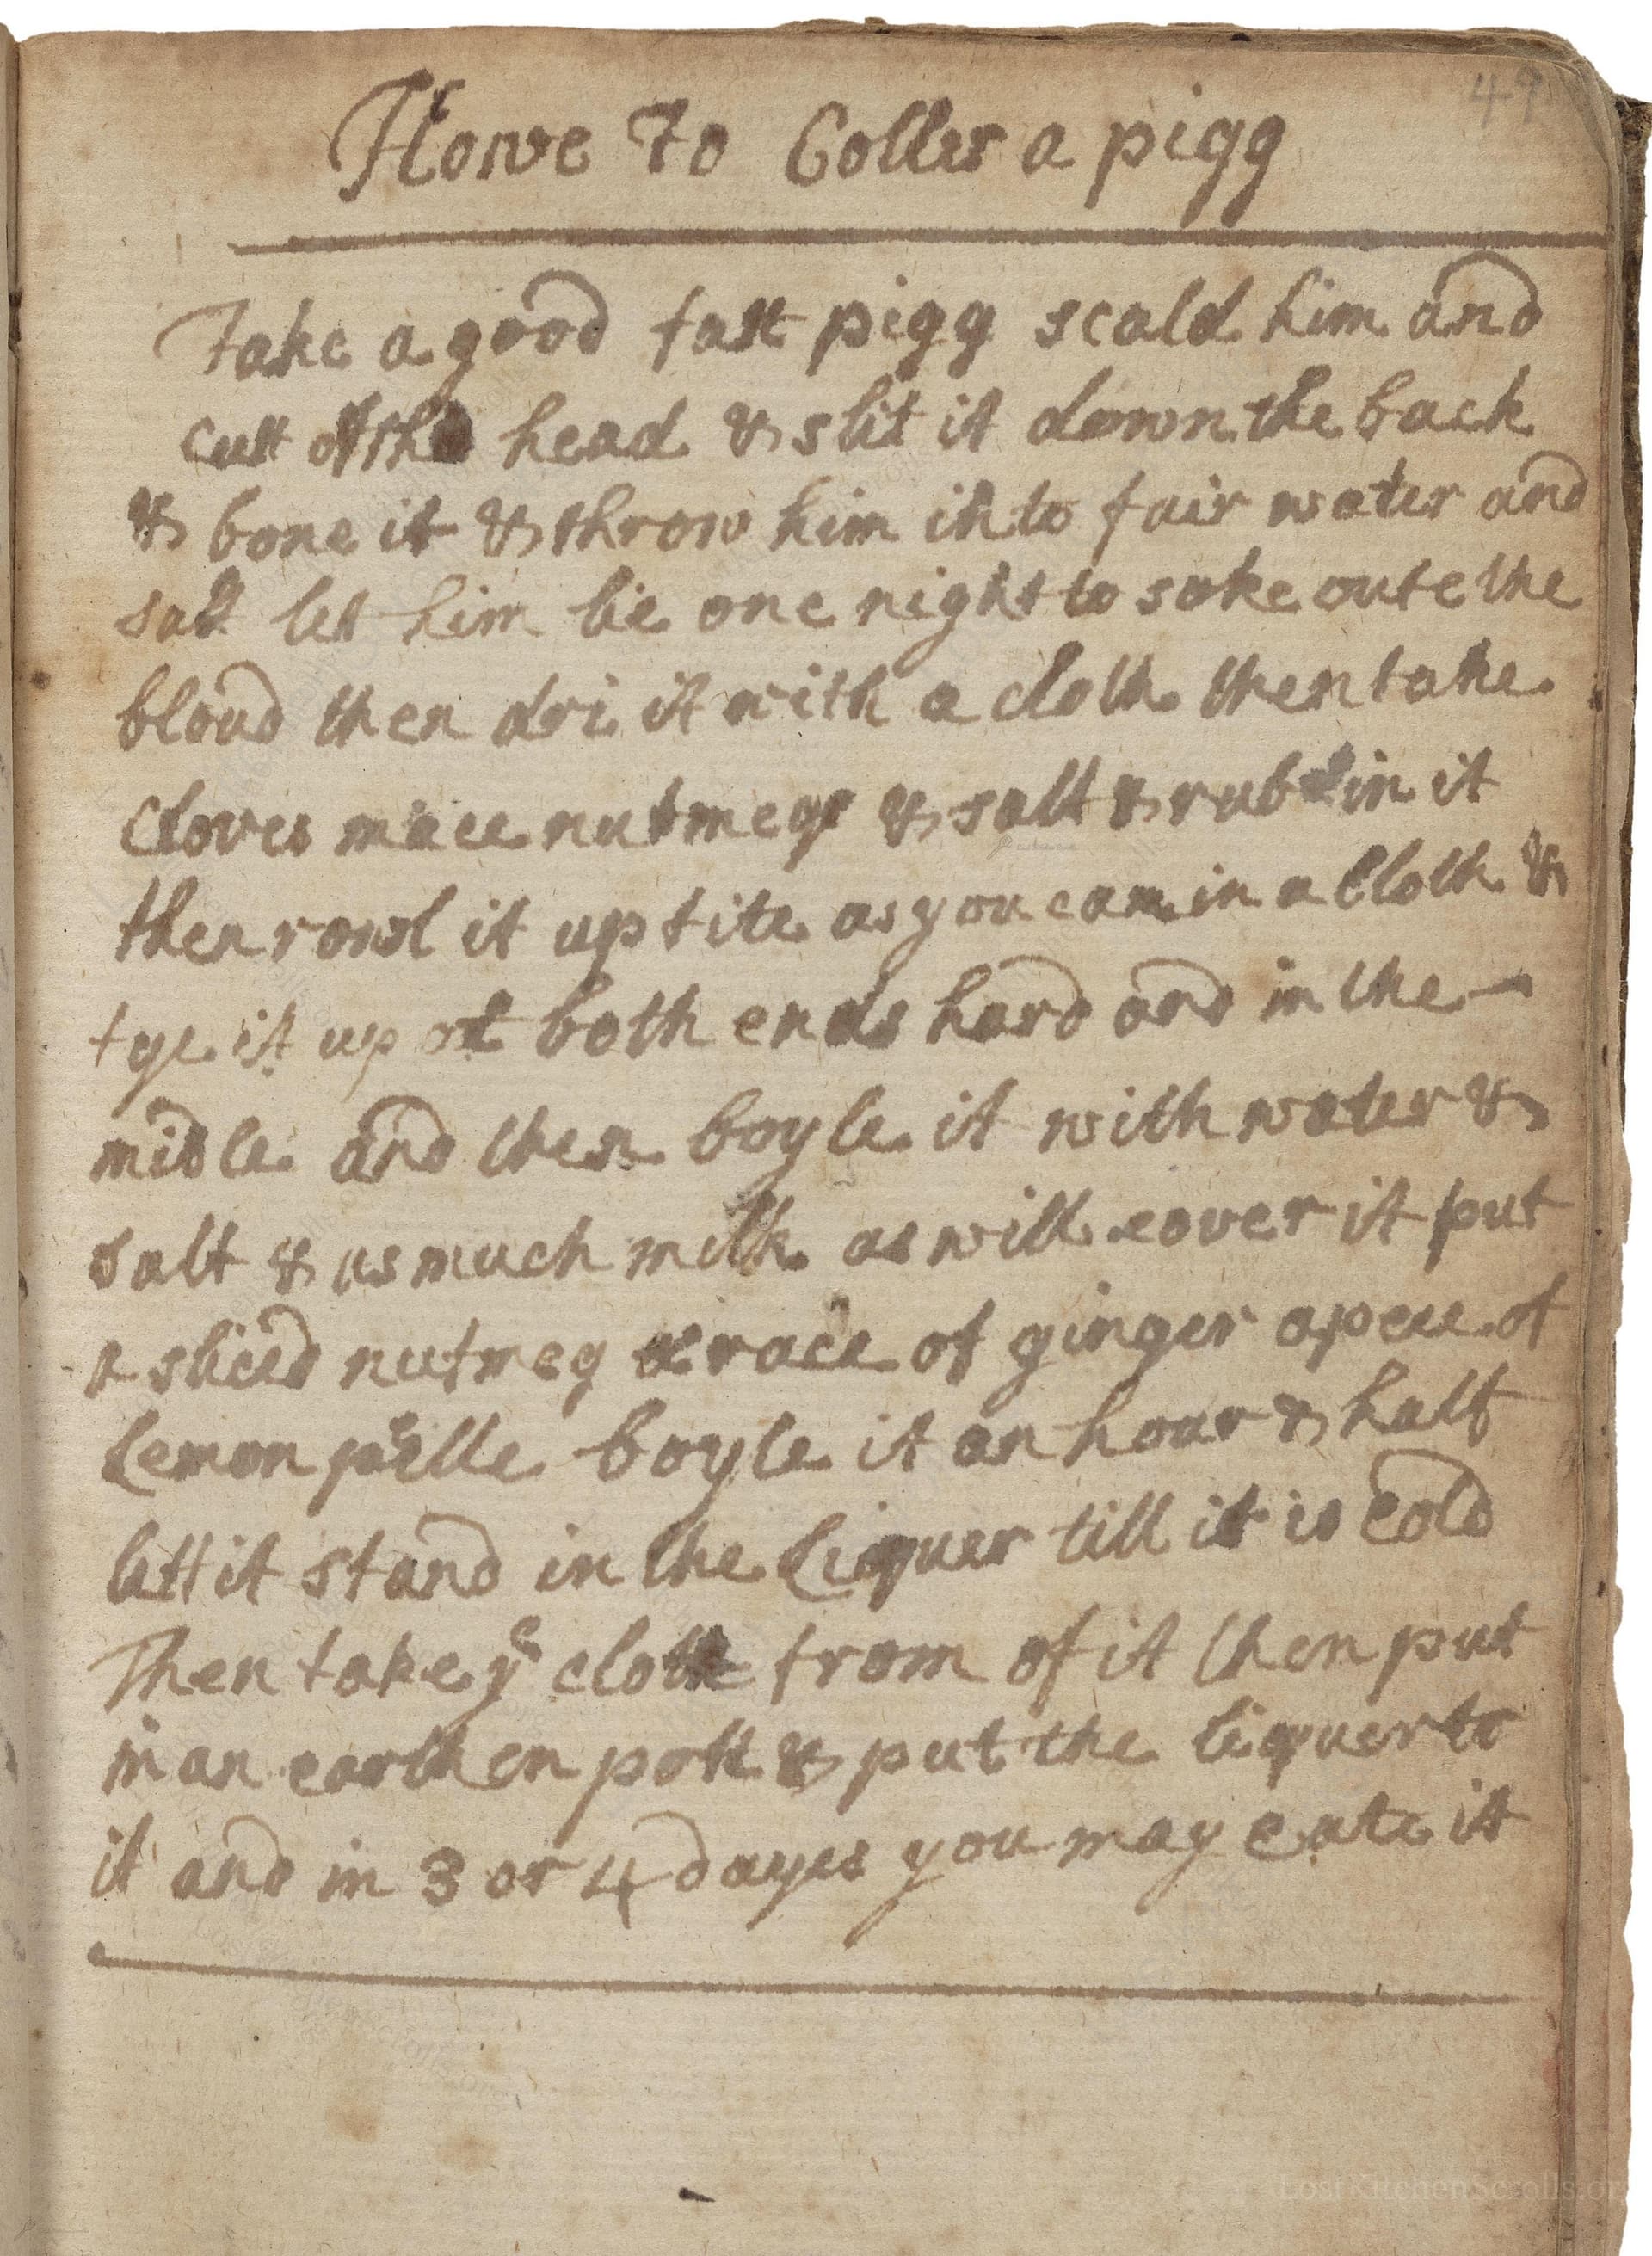 49
Howe To Coller a pigg
Take a good fatt pigg scald him and
cutt of the head & slit it down the back
& bone it & throw him in to fair water and
salt let him lie one night to soke oute the
bloud then dri it with a cloth then take
Cloves mace nutmegs & salt & rub in it
then rowl it up tite as you can in a Cloth &
tye it up at both ends hard and in the
midle and then boyle it with water &
salt & as much milk as will cover it put
a sliced nutmeg a race of ginger a pece of
Lemon pille boyle it an hour & half
lett it stand in the Liquer till it is cold
Then take yᵉ cloth from of it then put
in an earthen pott & put the liquer to
it and in 3 or 4 dayes you may eate it
LostKitchenScrolls.org